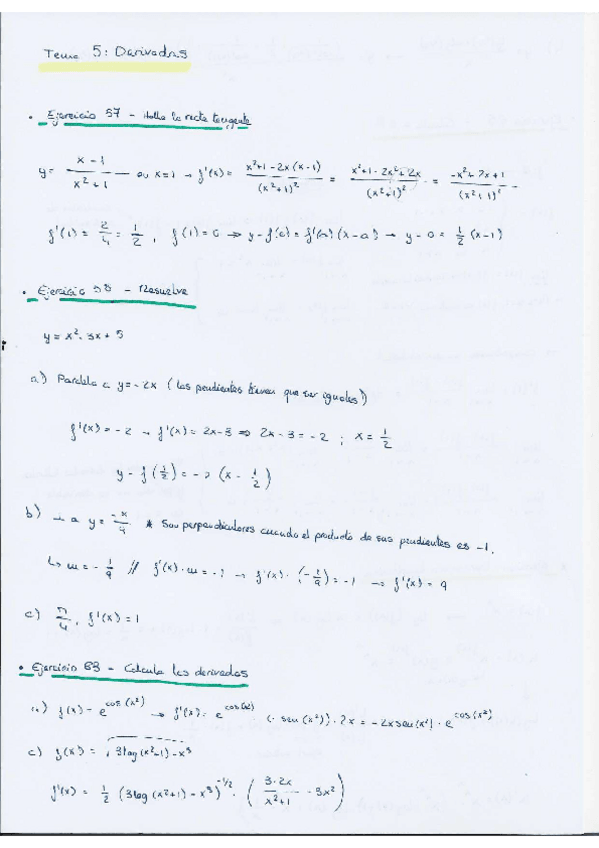 Tema 5: Derivadas
• Ejercicio 57 - Halla la recta tangente
y = (x - 1)/(x² + 1) en x=1 → f'(x) = (x²+1 - 2x(x-1))/(x²+1)² = (x²+1 - 2x²+2x)/(x²+1)² = (-x²+2x+1)/(x²+1)²
f'(1) = 2/4 = 1/2, f(1)=0 ⇒ y-f(a) = f'(a)(x-a) → y-0 = 1/2 (x-1)
• Ejercicio 58 - Resuelve
y = x² - 3x + 5
a) Paralela a y=-2x (las pendientes tienen que ser iguales!)
f'(x) = -2 → f'(x) = 2x-3 ⇒ 2x-3 = -2 ; x = 1/2
y - f(1/2) = -2 (x - 1/2)
b) ⊥ a y = -x/9 * Son perpendiculares cuando el producto de sus pendientes es -1.
↳ m = -1/9 // f'(x)·m = -1 → f'(x)·(-1/9) = -1 → f'(x) = 9
c) π/4, f'(x) = 1
• Ejercicio 63 - Calcula las derivadas
a) f(x) = e^cos(x²) → f'(x) = e^cos(x²) (-sen(x²))·2x = -2xsen(x²)·e^cos(x²)
c) f(x) = √(3log(x²+1)-x³)
f'(x) = 1/2 (3log(x²+1)-x³)^-1/2 · (3·2x/(x²+1) - 3x²)